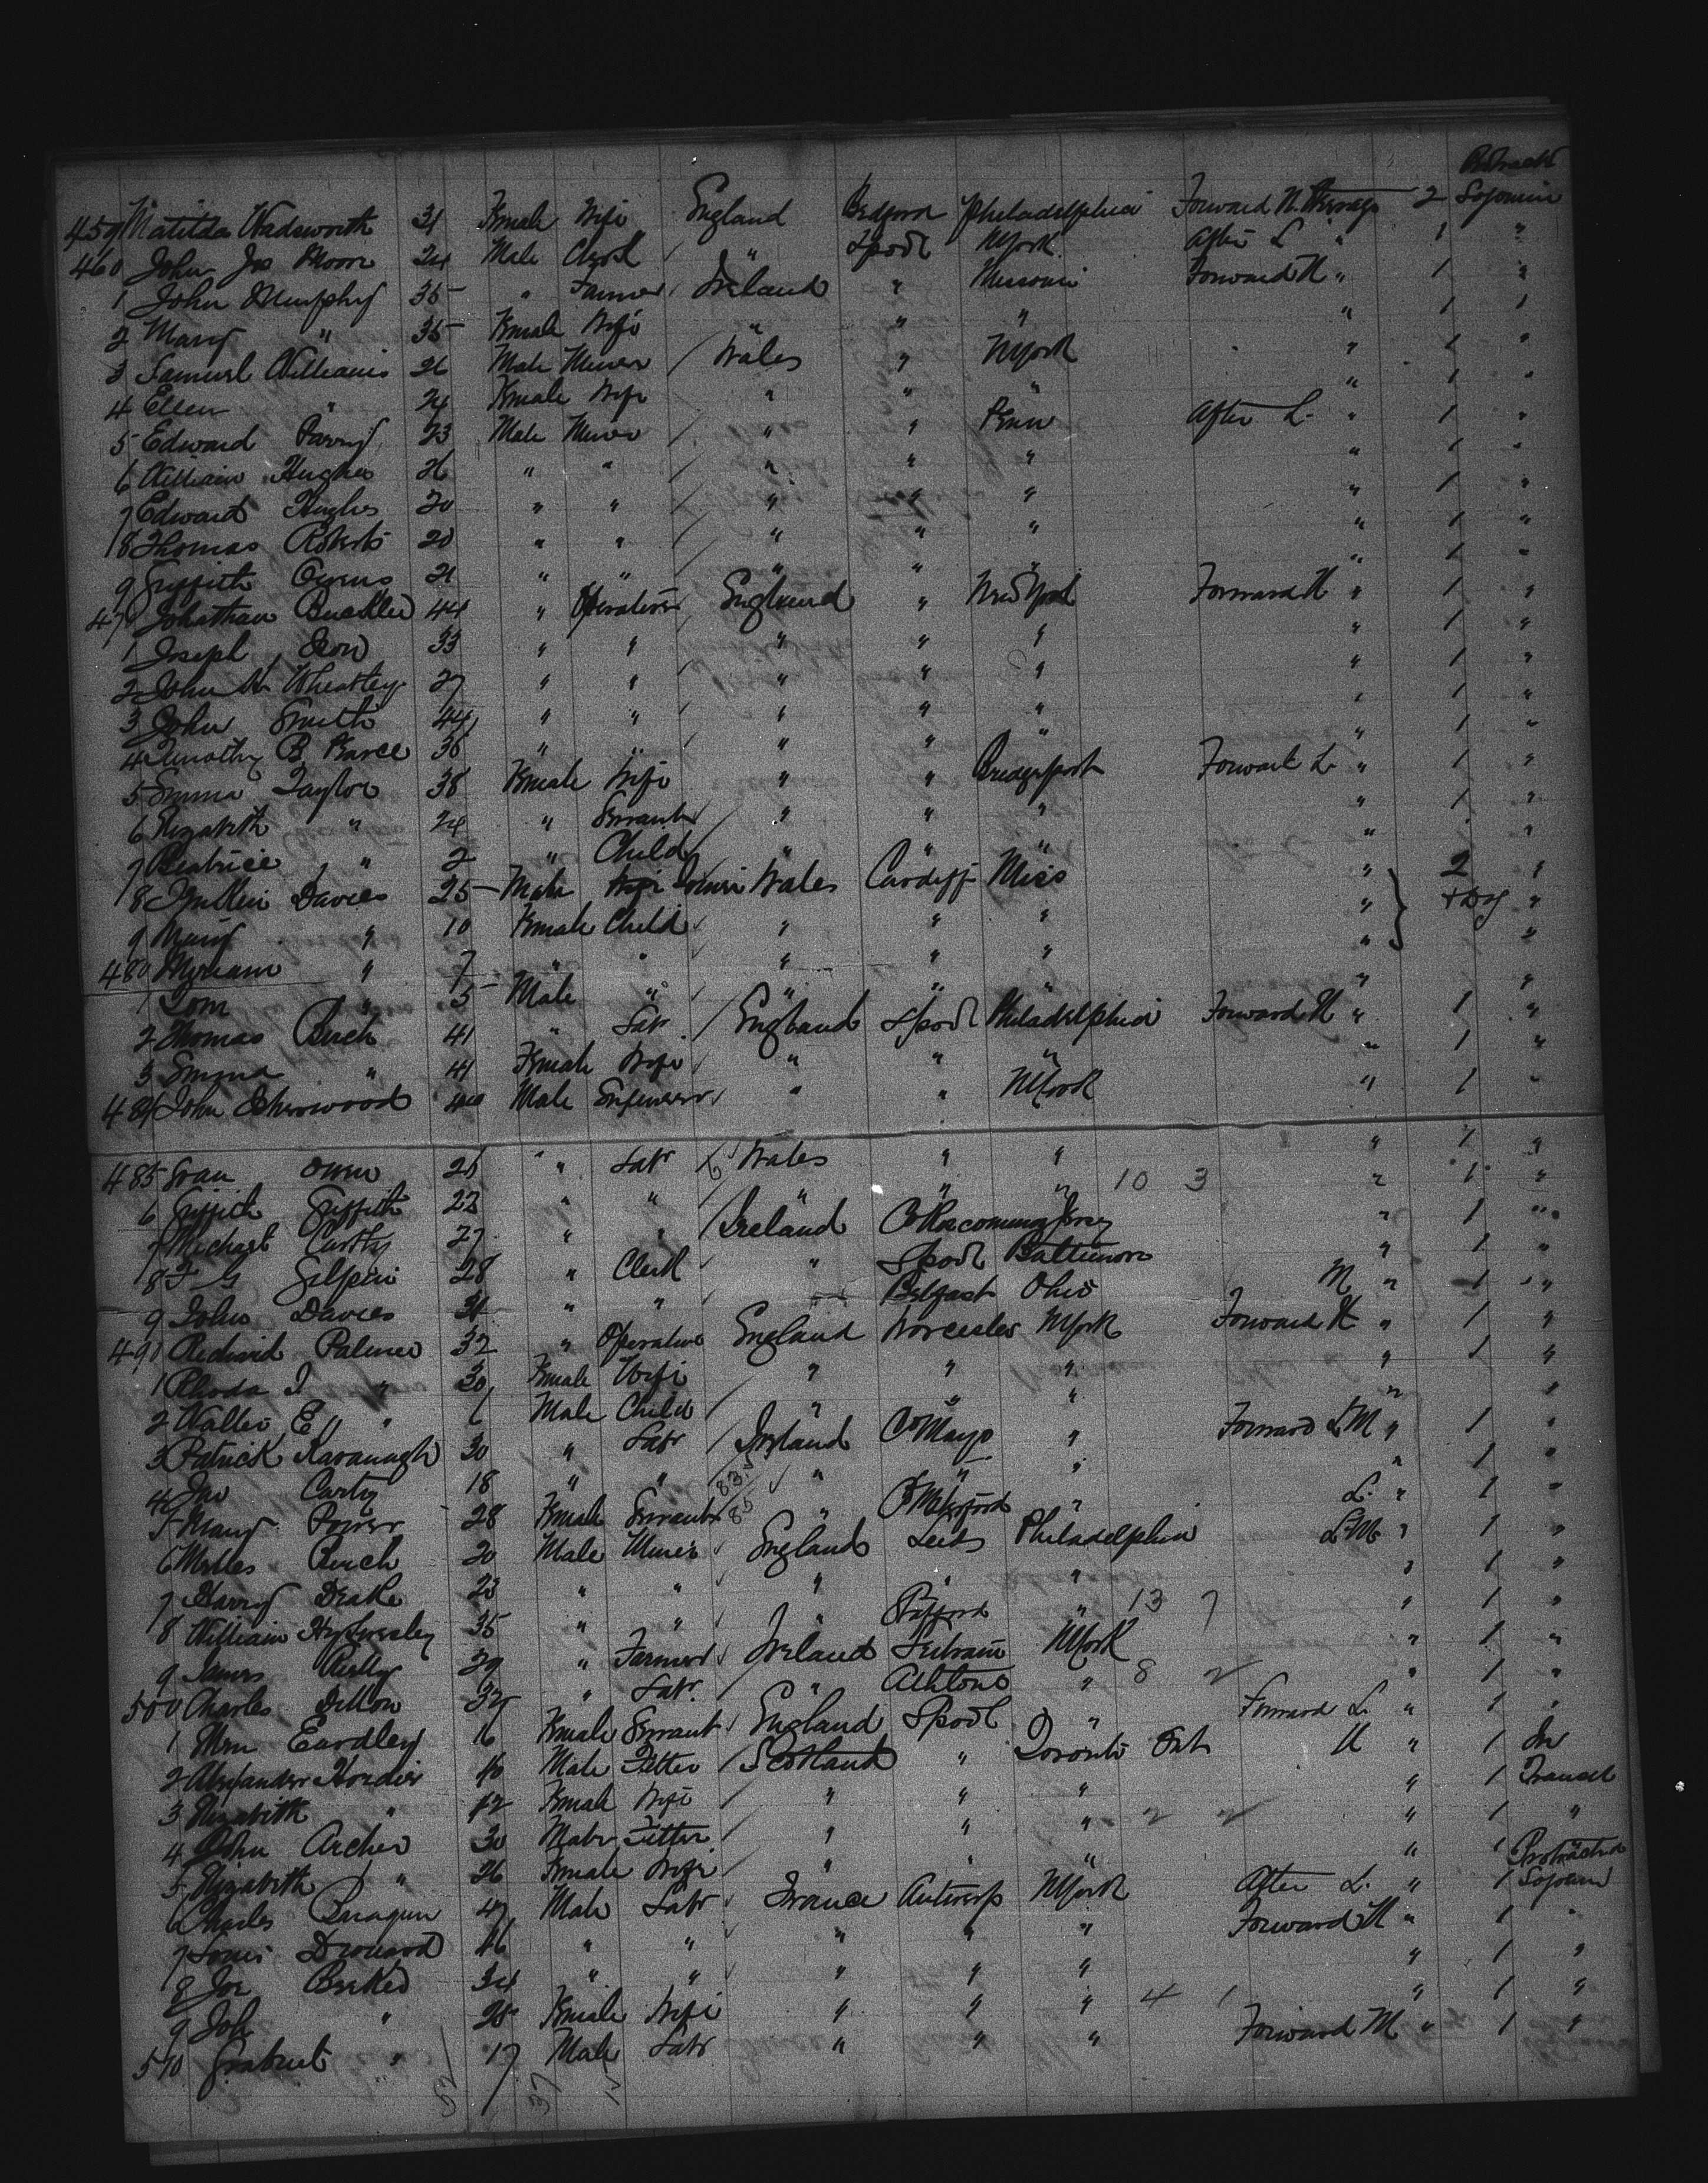 Protracted
459 Matilda Wadsworth 31 Female Wife England Bedford Philadelphia Forward U. Steerage 2 Sojourn
460 John Jos Moore 24 Male Clerk / " Lpool NYork After L " 1 "
1 John Murphy 35 " Farmer / Ireland " Missouri Forward U " 1 "
2 Mary " 35 Female Wife " " " " 1 "
3 Samuel Williams 26 Male Miner / Wales " NYork " 1 "
4 Ellen " 24 Female Wife " " " " 1 "
5 Edward Parry 23 Male Miner / " " Penn After L. " 1 "
6 William Hughes 26 " " / " " " " 1 "
7 Edward Hughes 20 " " / " " " " 1 "
8 Thomas Roberts 20 " " / " " " " 1 "
9 Griffith Owens 21 " " / " " " " 1 "
470 Johathan Buckley 44 " Operative / England " New York Forward U " 1 "
1 Joseph 33 " " / " " " " 1 "
2 John W. Wheatley 27 " " / " " " " 1 "
3 John Smith 44 " " / " " " " 1 "
4 Timothy B. Pearce 36 " " / " " " " 1 "
5 Emma Taylor 38 Female Wife " " Bridgeport Forward L. " 1 "
6 Elizabeth " 24 " Servant / " " " " 1 "
7 Beatrice " 2 " Child / " " " " "
8 Davies 25 Male Wales Cardiff Miss " 2 "
9 Mary " 10 Female Child / " " " " "
480 Myriam " 7 " " " " " " "
1 Tom " 5 Male " / " " " " "
2 Thomas Birch 41 " Labr / England Lpool Philadelphia Forward U " 1 "
3 Emma " 41 Female Wife / " " " " 1 "
484 John Isherwood 40 Male Engineer / " " NYork " 1 "
485 Evan Owen 25 " Labr / Wales " " " 1 "
6 Griffith Griffith 22 " " " " " 10 3 " 1 "
7 Michael Curtty 27 " " / Ireland Co Roscommon Jersey " 1 "
8 F G Gilpin 28 " Clerk / " Lpool Baltimore " 1 "
9 John Davies 31 " " / Belfast Ohio M " 1 "
490 Palmer 32 " Operative England Worcester NYork Forward U " 1 "
1 Rhoda J " 30 Female Wife " " " " 1 "
2 Walter E " Male Child / " " " " "
3 Patrick Kavanagh 30 " Labr / Ireland Co Mayo " Forward L M " 1 "
4 Jno Carty 18 " " / " " " " 1 "
5 Mary Power 28 Female Servant / " " L. " 1 "
6 Myles Birch 20 Male Miner / England Leeds Philadelphia L M " 1 "
7 Harry Drake 23 " " / " " " " 1 "
8 William Hy 35 " " / " Stafford " 13 7 " 1 "
9 James Reilly 29 " Farmer / Ireland Leitrim NYork " 1 "
500 Charles Dillon 32 " Labr. " Athlone " 8 2 " 1 "
1 Mrn Eardley 16 Female Servant / England Lpool " Forward L. " 1 "
2 Alexander 40 Male Fitter / Scotland " Toronto Ont U " 1 In
3 Elizabeth " 42 Female Wife " " " " 1 Transit
4 John Archer 30 Male Fitter / " " " 2 2 " 1 "
5 Elizabeth " 26 Female Wife / " " " " 1 Protracted
6 Charles 47 Male Labr / France Antwerp NYork After L. " 1 Sojourn
7 Louis Drouard 46 " " / " " " Forward U " 1 "
8 Joe 34 " " / " " " " 1 "
9 Job " 28 Female Wife " " " 4 1 " 1 "
510 " 17 Male Labr " " " Forward M " 1 "